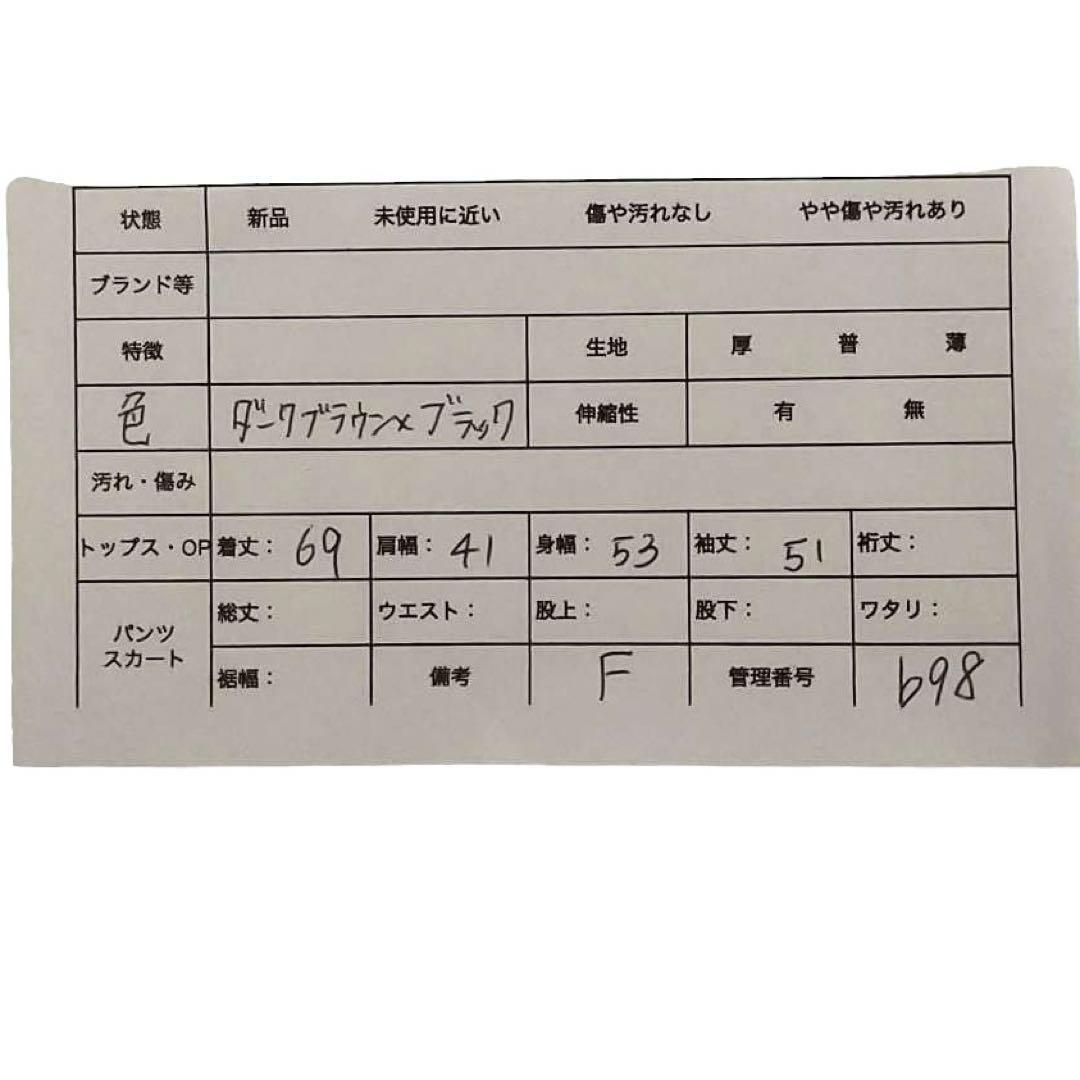 状態 新品 未使用に近い 傷や汚れなし やや傷や汚れあり
ブランド等
特徴 生地 厚 普 薄
色 ダークブラウン×ブラック 伸縮性 有 無
汚れ・傷み
トップス・OP 着丈： 69 肩幅： 41 身幅： 53 袖丈： 51 裄丈：
パンツ
スカート
総丈： ウエスト： 股上： 股下： ワタリ：
裾幅： 備考 F 管理番号 b98